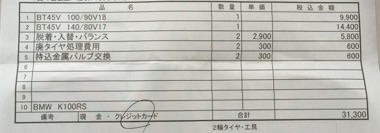 品名 数量 単価 税込金額
1 BT45V 100/90V18 1 9,900
2 BT45V 140/80V17 1 14,400
3 脱着・入替・バランス 2 2,900 5,800
4 廃タイヤ処理費用 2 300 600
5 持込金属バルブ交換 2 300 600
10 BMW K100RS
備考 現金・クレジットカード 合計 31,300
2輪タイヤ・工具